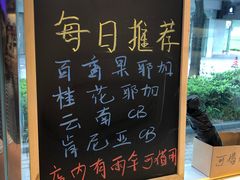 每日推荐
百香果耶加
桂花耶加
云南CB
肯尼亚CB
店内有雨伞可借用
可借